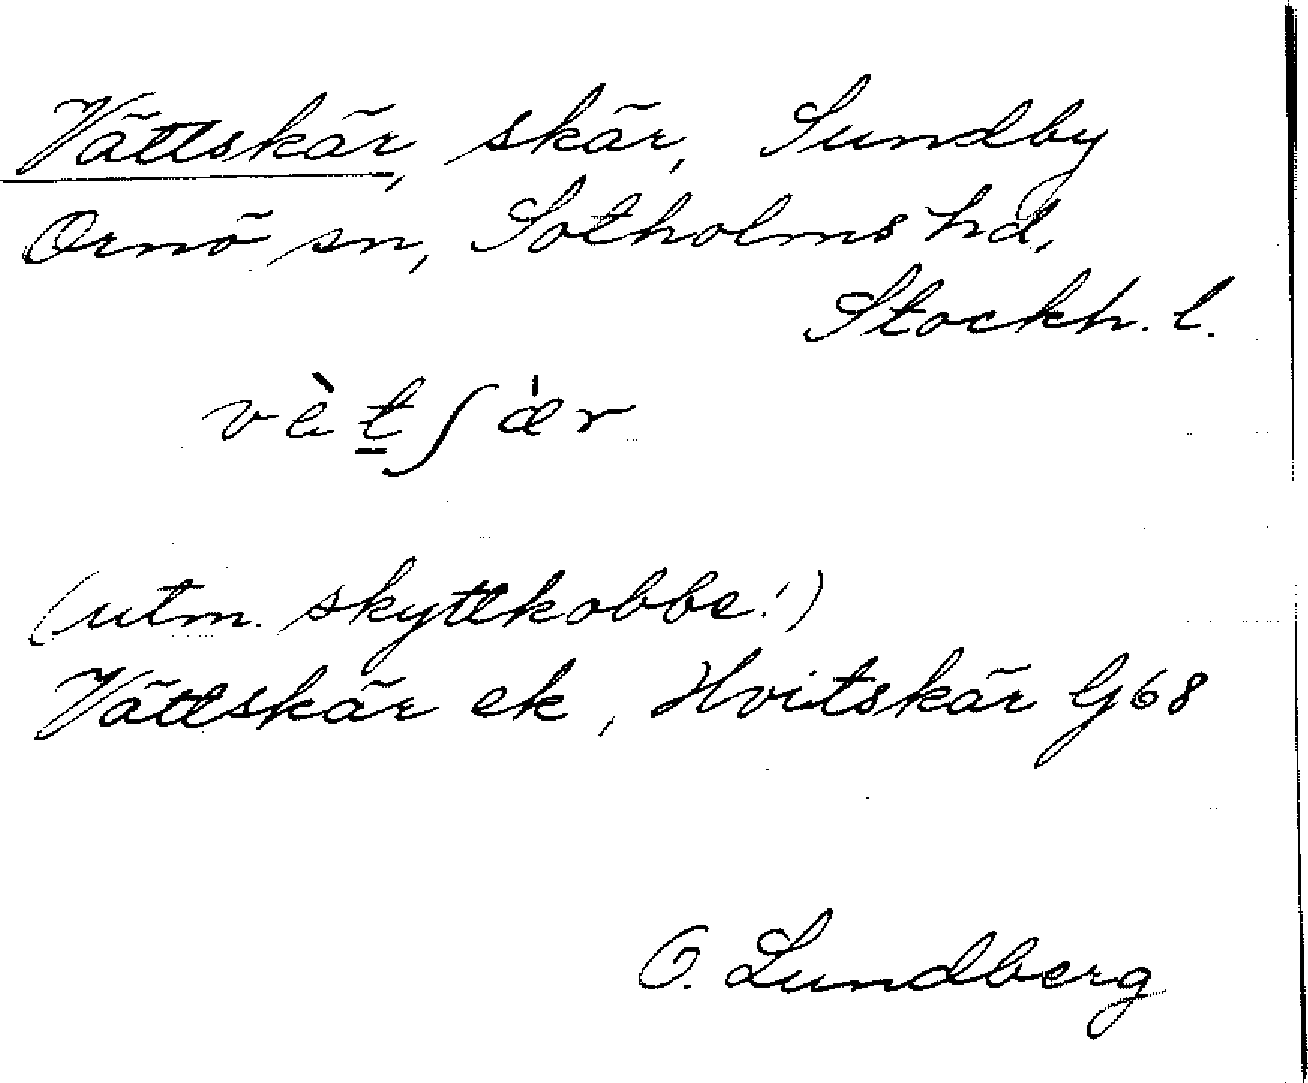 Vättskär, skär, Sundby
Ornö sn, Sotholms hd,
Stockh. l.
vèt̲ʃæ̀r
(utm. skyttkobbe!)
Vättskär ek, Hvitskär G68
O. Lundberg